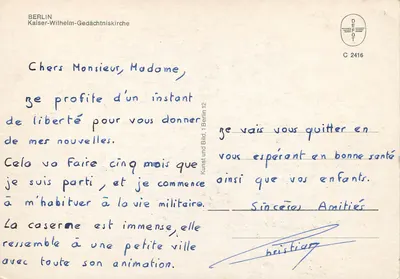 BERLIN
Kaiser-Wilhelm-Gedächtniskirche
C 2416
Chers Monsieur, Madame,
Je profite d'un instant
de liberté pour vous donner
de mes nouvelles.
Cela va faire cinq mois que
je suis parti, et je commence
à m'habituer à la vie militaire.
La caserne est immense, elle
ressemble à une petite ville
avec toute son animation.
Kunst und Bild, 1 Berlin 12
Je vais vous quitter en
vous esperant en bonne santé
ainsi que vos enfants.
Sincères Amitiés
Christian